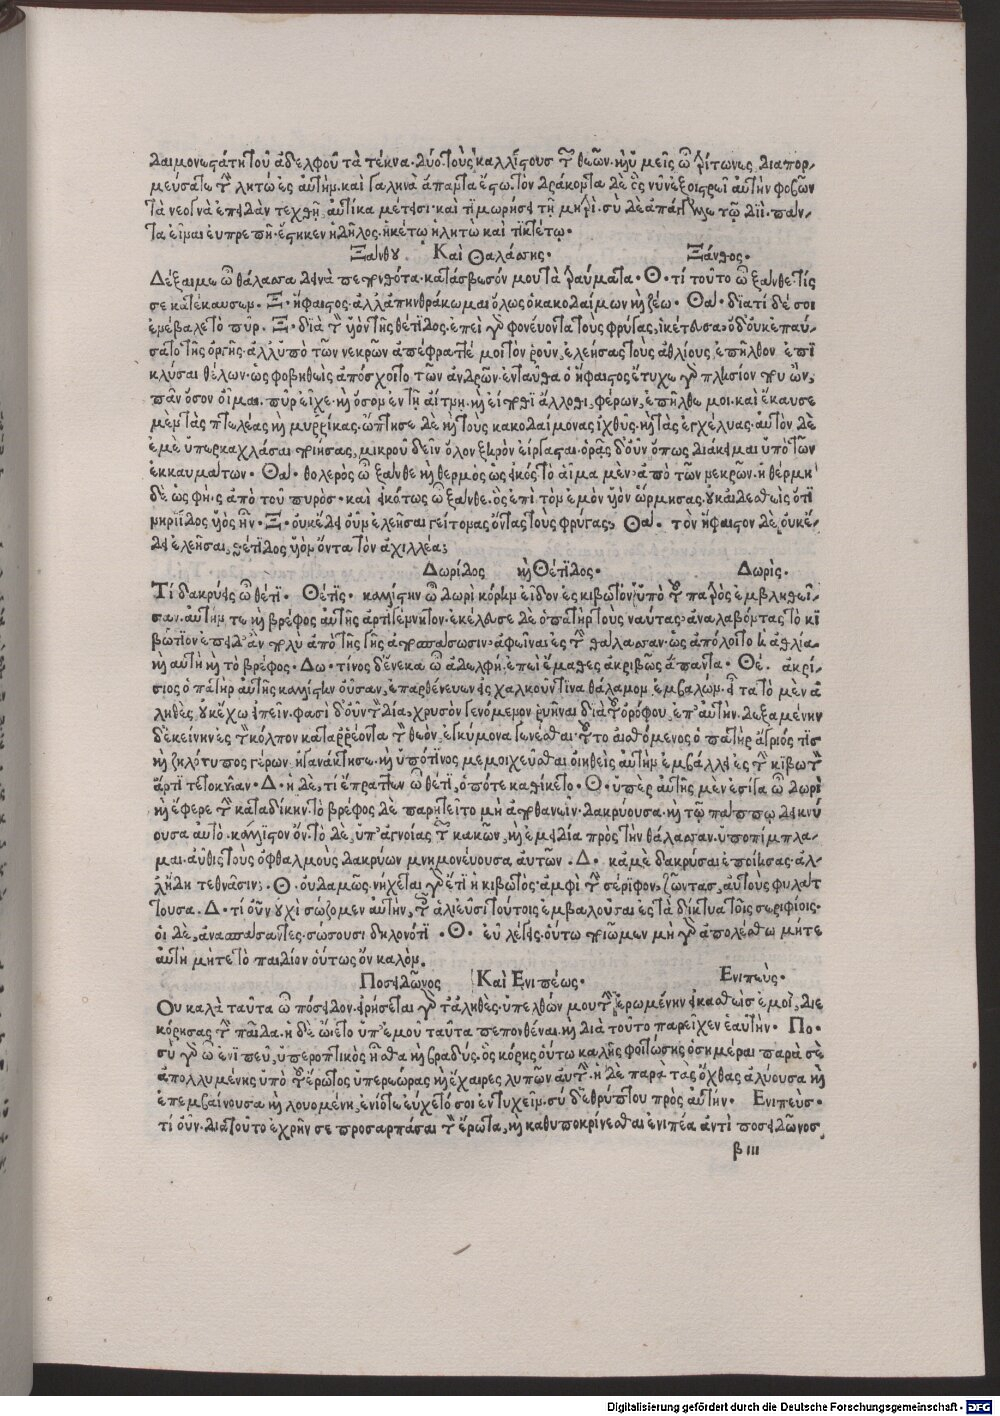 δαιμονεστάτη τοῦ ἀδελφοῦ τὰ τέκνα. δύο τοὺς καλλίστους τῶν θεῶν. καὶ ὑμεῖς ὦ τρίτωνες διαπορ-
μεύσατε τὴν λητὼ ἐς αὐτήν. καὶ γαληνὰ ἅπαντα ἔστω. τὸν δράκοντα δὲ ὃς νῦν ἐξοιστρεῖ αὐτὴν φοβῶν
τὰ νεογνὰ ἐπειδὰν τεχθῇ, αὐτίκα μέτεισι. καὶ τιμωρήσει τῇ μητρί. σὺ δὲ ἀπάγγειλον τῷ διί. παν-
τα εἶναι ευπρεπῆ. ἕστηκεν ἡ δῆλος. ἡκέτω ἡ λητὼ καὶ τικτέτω.
Ξάνθου Καὶ Θαλάσσης. Ξάνθος.
Δέξαι με ὦ θάλασσα δεινὰ πεπονθότα. κατάσβεσόν μου τὰ τραύματα. Θ. τί τοῦτο ὦ ξάνθε. τίς
σε κατέκαυσεν. Ξ. ἥφαιστος. ἀλλ' ἀπηνθράκωμαι ὅλως ὁ κακοδαίμων καὶ ζέω. Θα. διατί δέ σοι
ἐνέβαλε τὸ πῦρ. Ξ. διὰ τὸν ὑὸν τῆς θέτιδος. ἐπεὶ γὰρ φονέυοντα τοὺς φρύγας, ἱκέτευσα. ὁ δ' οὐκ ἐπαύ-
σατο τῆς ὀργῆς. ἀλλ' ὑπὸ τῶν νεκρῶν ἀπέφραττέ μοι τὸν ῥοῦν, ἐλεήσας τοὺς ἀθλίους ἐπῆλθον ἐπι
κλύσαι θέλων. ὡς φοβηθεὶς ἀπόσχοιτο τῶν ἀνδρῶν. ἐνταῦθα ὁ ἥφαιστος ἔτυχε γὰρ πλησίον που ὤν,
πᾶν ὅσον οἶμαι πῦρ εἶχε. καὶ ὅσον ἐν τῇ αἴτνῃ. καὶ εἴ ποθι ἄλλοθι, φέρων, ἐπῆλθέ μοι. καὶ ἔκαυσε
μὲν τὰς πτελέας καὶ μυρρίκας. ὤπτησε δὲ καὶ τοὺς κακοδαίμονας ἰχθῦς. καὶ τὰς ἐγχέλυας. αὐτὸν δὲ
ἐμὲ ὑπερκαχλάσαι ποιήσας, μικροῦ δεῖν ὅλον ξηρὸν εἴργασται. ὁρᾷς δ' οὖν ὅπως διάκειμαι ὑπὸ τῶν
ἐκκαυμάτων. Θα. θολερὸς ὦ ξάνθε καὶ θερμὸς ὡς εἰκός. τὸ αἷμα μὲν. ἀπὸ τῶν νεκρῶν. ἡ θέρμη
δὲ ὡς φής ἀπὸ τοῦ πυρός. καὶ εἰκότως ὦ ξάνθε. ὃς ἐπὶ τὸν ἐμὸν ὑὸν ὥρμησας. οὐκ αἰδεσθεὶς ὅτι
νηρηΐδος ὑὸς ἦν. Ξ. οὐκ ἔδει οὖν ἐλεῆσαι γείτονας ὄντας τοὺς φρύγας; Θα. τὸν ἥφαιστον δὲ οὐκ ἔ-
δει ἐλεῆσαι, θέτιδος ὑὸν ὄντα τὸν ἀχιλλέα;
Δωρίδος καὶ Θέτιδος. Δωρὶς.
Τί δακρύεις ὦ θέτι. Θέτις. καλλίστην ὦ δωρὶ κόρην εἶδον ἐς κιβωτὸν ὑπὸ τοῦ πατρὸς ἐμβληθεῖ-
σαν. αὐτήν τε καὶ βρέφος αὐτῆς ἀρτιγέννητον. ἐκέλευσε δὲ ὁ πατὴρ τοὺς ναύτας ἀναλαβόντας τὸ κι
βώτιον ἐπειδ' ἂν πολὺ ἀπὸ τῆς γῆς ἀποσπάσωσιν ἀφεῖναι ἐς τὴν θάλασσαν. ὡς ἀπόλοιτο ἡ ἀθλία.
καὶ αὐτὴ καὶ τὸ βρέφος. Δω. τίνος δ' ἕνεκα ὦ ἀδελφή. ἐπεὶ ἔμαθες ἀκριβῶς ἅπαντα. Θέ. ἀκρί-
σιος ὁ πατὴρ αὐτῆς καλλίστην οὖσαν, ἐπαρθένευεν ἐς χαλκοῦν τινα θάλαμον ἐμβαλών. εἶτα τὸ μὲν ἀ
ληθὲς, οὐκ ἔχω εἰπεῖν. φασὶ δ' οὖν τὸν δία, χρυσὸν γενόμενον ῥυῆναι διὰ τοῦ ὀρόφου ἐπ' αὐτήν. δεξαμένην
δ' ἐκείνην ἐς τὸν κόλπον καταρρέοντα τὸν θεὸν, ἐγκύμονα γενέσθαι. τοῦτο αἰσθόμενος ὁ πατὴρ ἄγριός τις
καὶ ζηλότυπος γέρων. ἠγανάκτησε. καὶ ὑπό τινος μεμοιχεῦσθαι οἰηθεὶς αὐτὴν ἐμβάλλει ἐς τὴν κιβωτὸν
ἄρτι τετοκυῖαν. Δ. ἡ δὲ, τί ἔπραττεν ὦ θέτι, ὁπότε καθίκετο. Θ. ὑπὲρ αὑτῆς μὲν ἐσίγα ὦ δωρὶ
καὶ ἔφερε τὴν καταδίκην. τὸ βρέφος δὲ παρῃτεῖτο μὴ ἀποθανεῖν. δακρύουσα. καὶ τῷ πάππῳ δεικνύ
ουσα αὐτὸ. κάλλιστον ὄν. τὸ δὲ, ὑπ' ἀγνοίας τῶν κακῶν, καὶ ἐμειδία πρὸς τὴν θάλασσαν. ὑποπίμπλα-
μαι αὖθις τοὺς ὀφθαλμοὺς δακρύων μνημονέυουσα αὐτῶν. Δ. κἀμὲ δακρῦσαι ἐποίησας. ἀλ-
λ' ἤδη τεθνᾶσιν; Θ. οὐδαμῶς. νήχεται γὰρ ἔτι ἡ κιβωτὸς ἀμφὶ τὴν σέριφον. ζῶντας αὐτοὺς φυλάτ
τουσα. Δ. τί οὖν οὐχὶ σώζομεν αὐτὴν, τοῖς ἁλιεῦσι τούτοις ἐμβαλοῦσαι ἐς τὰ δίκτυα τοῖς σεριφίοις.
οἱ δὲ, ἀνασπάσαντες. σώσουσι δηλονότι. Θ. εὖ λέγεις. οὕτω ποιῶμεν μὴ γὰρ ἀπολέσθω μήτε
αὐτὴ μήτε τὸ παιδίον οὕτως ὂν καλόν.
Ποσειδῶνος Καὶ Ενιπέως. Ενιπεὺς.
Ου καλὰ ταῦτα ὦ πόσειδον. εἰρήσεται γὰρ τἀληθὲς. ὑπελθών μου τὴν ἐρωμένην εἰκασθεὶς ἐμοὶ, διε
κόρησας τὴν παῖδα. ἡ δὲ ὤετο ὑπ' ἐμοῦ ταῦτα πεπονθέναι. καὶ διὰ τοῦτο παρεῖχεν ἑαυτήν. Πο.
σὺ γὰρ ὦ ἐνιπεῦ, ὑπεροπτικὸς ἦσθα καὶ βραδύς. ὃς κόρης οὕτω καλῆς φοιτώσης ὁσημέραι παρὰ σὲ
ἀπολλυμένης ὑπὸ τοῦ ἔρωτος ὑπερεώρας καὶ ἔχαιρες λυπῶν αὐτήν. ἡ δὲ παρὰ τὰς ὄχθας ἀλύουσα καὶ
ἐπεμβαίνουσα καὶ λουομένη, ἐνίοτε εὔχετό σοι ἐντυχεῖν. σύ δ' ἐθρύπτου πρὸς αὐτήν. Ενιπεύς.
τί οὖν. διατοῦτο ἐχρῆν σε προσαρπάσαι τὸν ἔρωτα, καὶ καθυποκρίνεσθαι ἐνιπέα ἀντὶ ποσειδῶνος
β III
Digitalisierung gefördert durch die Deutsche Forschungsgemeinschaft - DFG